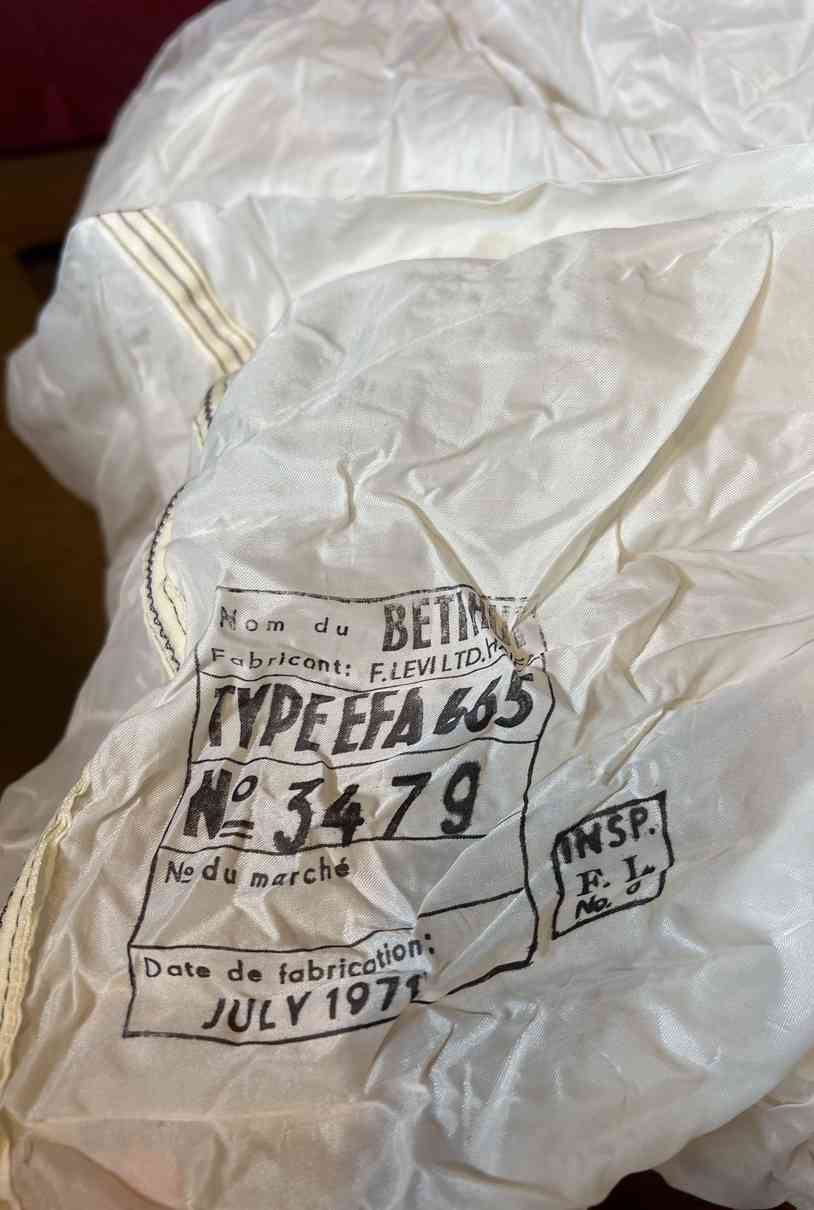 Nom du
Fabricant: F. LEVI LTD.
TYPE EFA 665
Nº 3479
Nº du marché
Date de fabrication:
JULY 1971
INSP.
F. L.
No.